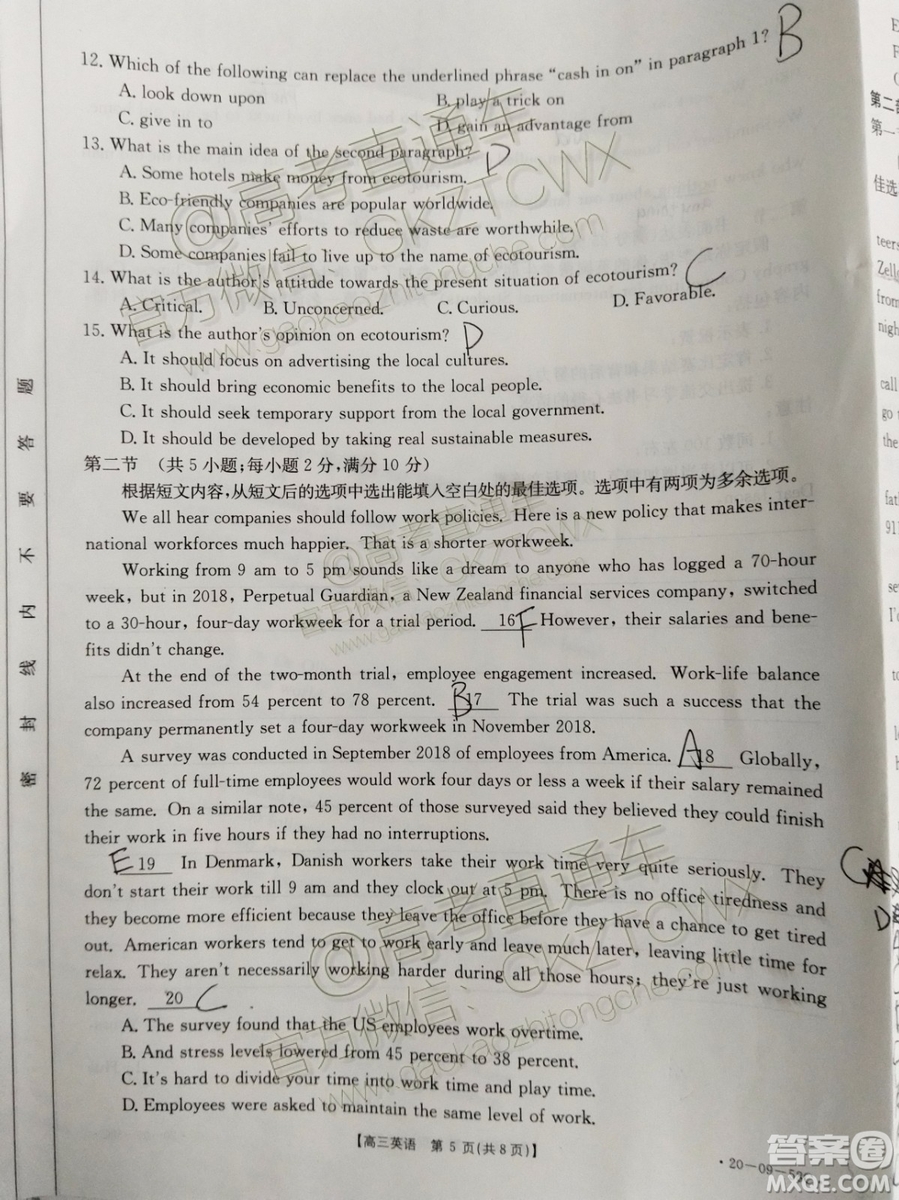 12. Which of the following can replace the underlined phrase “cash in on” in paragraph 1? B
A. look down upon B. play a trick on
C. give in to D. gain an advantage from
13. What is the main idea of the second paragraph? D
A. Some hotels make money from ecotourism.
B. Eco-friendly companies are popular worldwide.
C. Many companies’ efforts to reduce waste are worthwhile.
D. Some companies fail to live up to the name of ecotourism.
14. What is the author’s attitude towards the present situation of ecotourism? C
A. Critical. B. Unconcerned. C. Curious. D. Favorable.
15. What is the author’s opinion on ecotourism? D
A. It should focus on advertising the local cultures.
B. It should bring economic benefits to the local people.
C. It should seek temporary support from the local government.
D. It should be developed by taking real sustainable measures.
第二节 (共5小题;每小题2分,满分10分)
根据短文内容,从短文后的选项中选出能填入空白处的最佳选项。选项中有两项为多余选项。
We all hear companies should follow work policies. Here is a new policy that makes inter-
national workforces much happier. That is a shorter workweek.
Working from 9 am to 5 pm sounds like a dream to anyone who has logged a 70-hour
week, but in 2018, Perpetual Guardian, a New Zealand financial services company, switched
to a 30-hour, four-day workweek for a trial period. 16 F However, their salaries and bene-
fits didn’t change.
At the end of the two-month trial, employee engagement increased. Work-life balance
also increased from 54 percent to 78 percent. B 17 The trial was such a success that the
company permanently set a four-day workweek in November 2018.
A survey was conducted in September 2018 of employees from America. A 18 Globally,
72 percent of full-time employees would work four days or less a week if their salary remained
the same. On a similar note, 45 percent of those surveyed said they believed they could finish
their work in five hours if they had no interruptions.
E 19 In Denmark, Danish workers take their work time very quite seriously. They
don’t start their work till 9 am and they clock out at 5 pm. There is no office tiredness and
they become more efficient because they leave the office before they have a chance to get tired
out. American workers tend to get to work early and leave much later, leaving little time for
relax. They aren’t necessarily working harder during all those hours; they’re just working
longer. 20 C
A. The survey found that the US employees work overtime.
B. And stress levels lowered from 45 percent to 38 percent.
C. It’s hard to divide your time into work time and play time.
D. Employees were asked to maintain the same level of work.
【高三英语 第5页(共8页)】
·20-09-52
密 封 线 内 不 要 答 题
@高考直通车
官方微信:GKZTCWX
www.gaokaozhitongche.com
@高考直通车
官方微信:GKZTCWX
@高考直通车
官方微信:GKZTCWX
www.gaokaozhitongche.com
答案圈
MXQE.COM
第二部
第一
佳选
teers
Zello
from
nigh
call
go t
the
fath
911